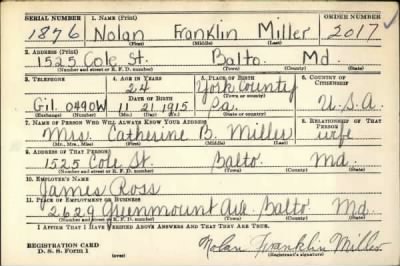 SERIAL NUMBER 1. NAME (Print) ORDER NUMBER
1876 Nolan Franklin Miller 2017
(First) (Middle) (Last)
2. ADDRESS (Print)
1525 Cole St. Balto. Md.
(Number and street or R. F. D. number) (Town) (County) (State)
3. TELEPHONE 4. AGE IN YEARS 5. PLACE OF BIRTH 6. COUNTRY OF CITIZENSHIP
24 York County
DATE OF BIRTH (Town or county)
Gil. 0490W 11 21 1915 Pa. U.S.A.
(Exchange) (Number) (Mo.) (Day) (Yr.) (State or country)
7. NAME OF PERSON WHO WILL ALWAYS KNOW YOUR ADDRESS 8. RELATIONSHIP OF THAT PERSON
Mrs. Catherine B. Miller wife
(Mr., Mrs., Miss) (First) (Middle) (Last)
9. ADDRESS OF THAT PERSON
1525 Cole St. Balto. Md.
(Number and street or R. F. D. number) (Town) (County) (State)
10. EMPLOYER'S NAME
James Ross
11. PLACE OF EMPLOYMENT OR BUSINESS
2629 Greenmount Ave. Balto. Md.
(Number and street or R. F. D. number) (Town) (County) (State)
I AFFIRM THAT I HAVE VERIFIED ABOVE ANSWERS AND THAT THEY ARE TRUE.
REGISTRATION CARD
D. S. S. Form 1 Nolan Franklin Miller
(over) (Registrant's signature)